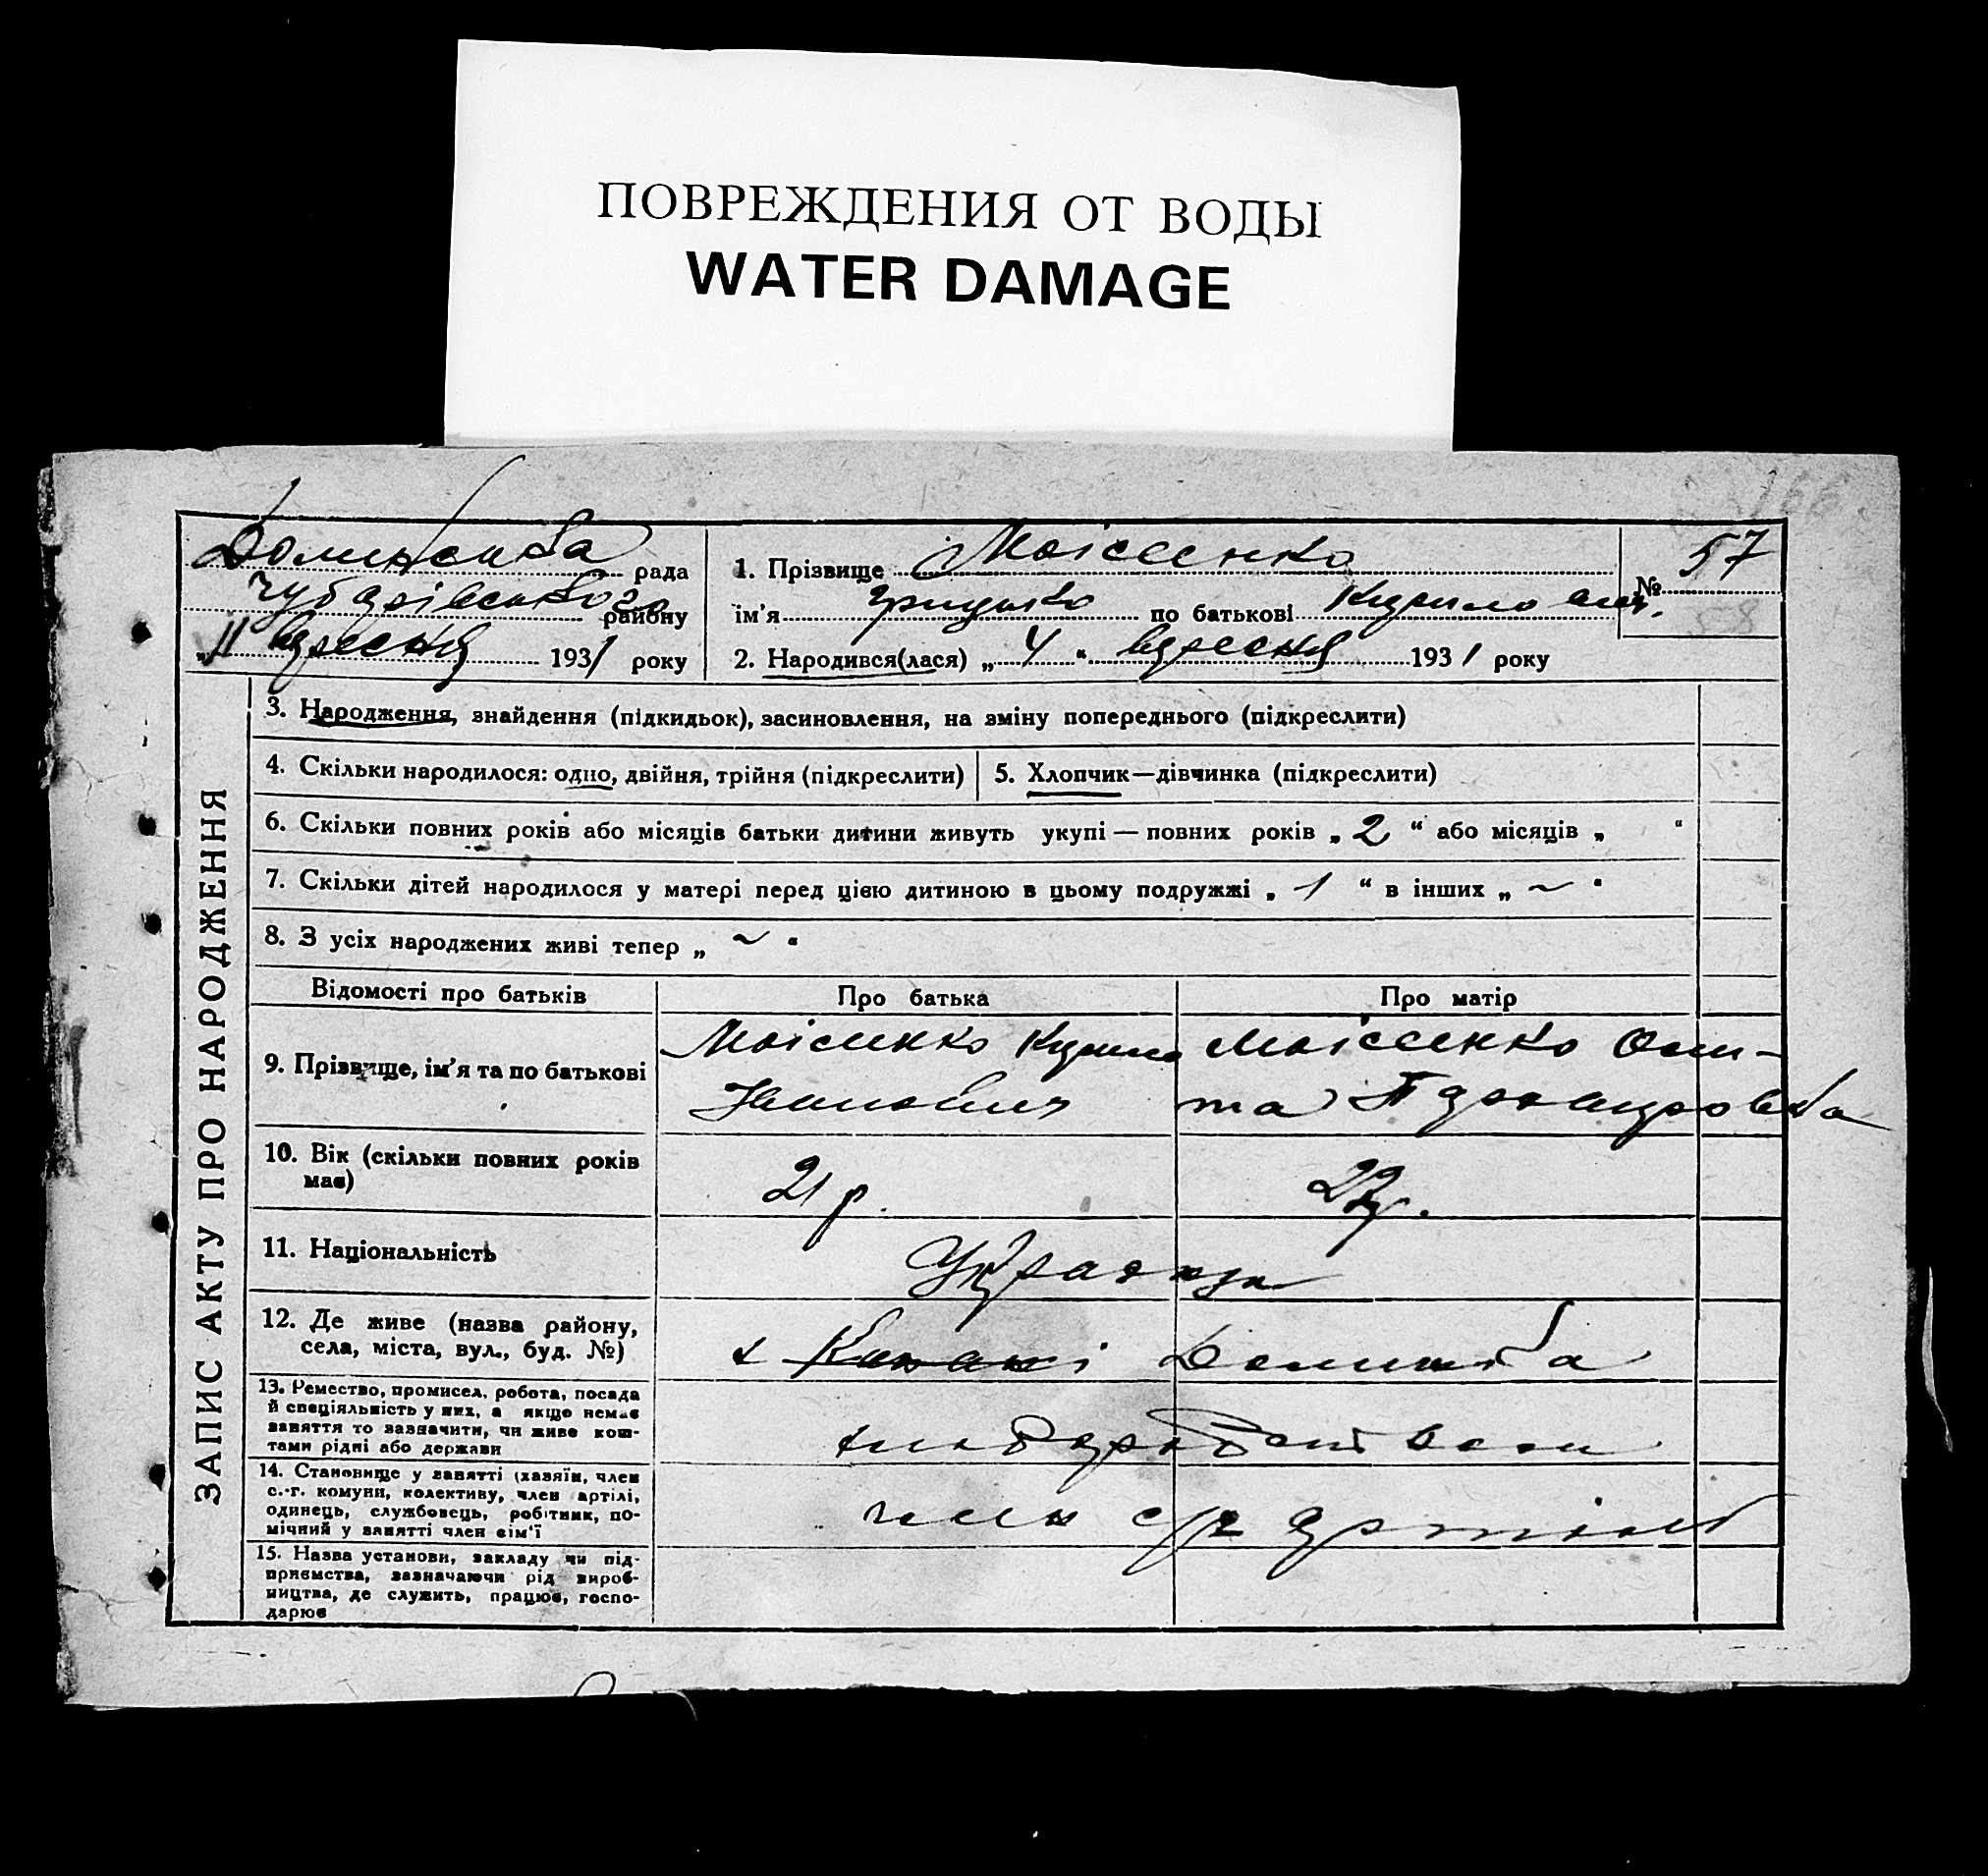 ПОВРЕЖДЕНИЯ ОТ ВОДЫ
WATER DAMAGE
166
Долинська рада
Чубарівського району
„11 вересня 1931 року
1. Прізвище Моісеенко
№ 57
58
ім'я Грицько по батькові Кирилович.
2. Народився(лася) „ 4 “ вересня 1931 року
ЗАПИС АКТУ ПРО НАРОДЖЕННЯ
3. Народження, знайдення (підкидьок), засиновлення, на зміну попереднього (підкреслити)
4. Скільки народилося: одно, двійня, трійня (підкреслити)
5. Хлопчик—дівчинка (підкреслити)
6. Скільки повних років або місяців батьки дитини живуть укупі — повних років „ 2 “ або місяців „ “
7. Скільки дітей народилося у матері перед цією дитиною в цьому подружжі „ 1 “ в інших „ ~ “
8. З усіх народжених живі тепер „ ~ “
Відомості про батьків
Про батька
Про матір
9. Прізвище, ім'я та по батькові
Моісиенко Кирило
Иванович
Моісеенко
10. Вік (скільки повних років
має)
21 р.
22 р.
11. Національність
12. Де живе (назва району,
села, міста, вул., буд. №)
Долинська
13. Ремество, промисел, робота, посада
й спеціяльність у них, а якщо немає
заняття то зазначити, чи живе кош-
тами рідні або держави
14. Становище у занятті (хазяїн, член
с.-г. комуни, колективу, член артілі,
одинець, службовець, робітник, по-
мічний у занятті член сім'ї
член с/г артілі
15. Назва установи, закладу чи під-
приємства, зазначаючи рід вироб-
ництва, де служить, працює, госпо-
дарює